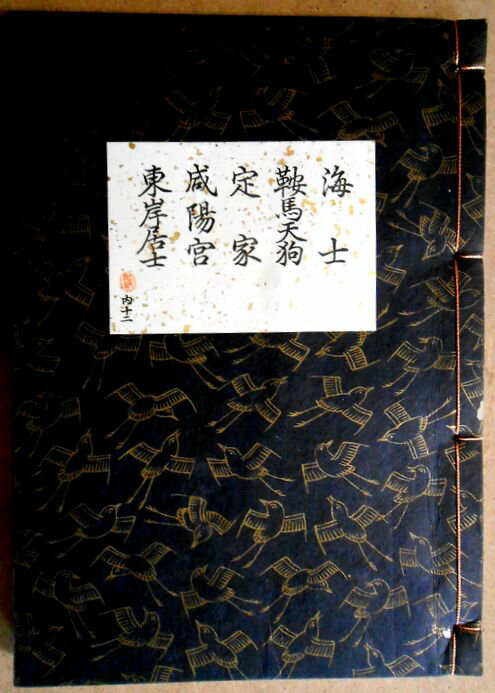 海士
鞍馬天狗
定家
咸陽宮
東岸居士
内十二